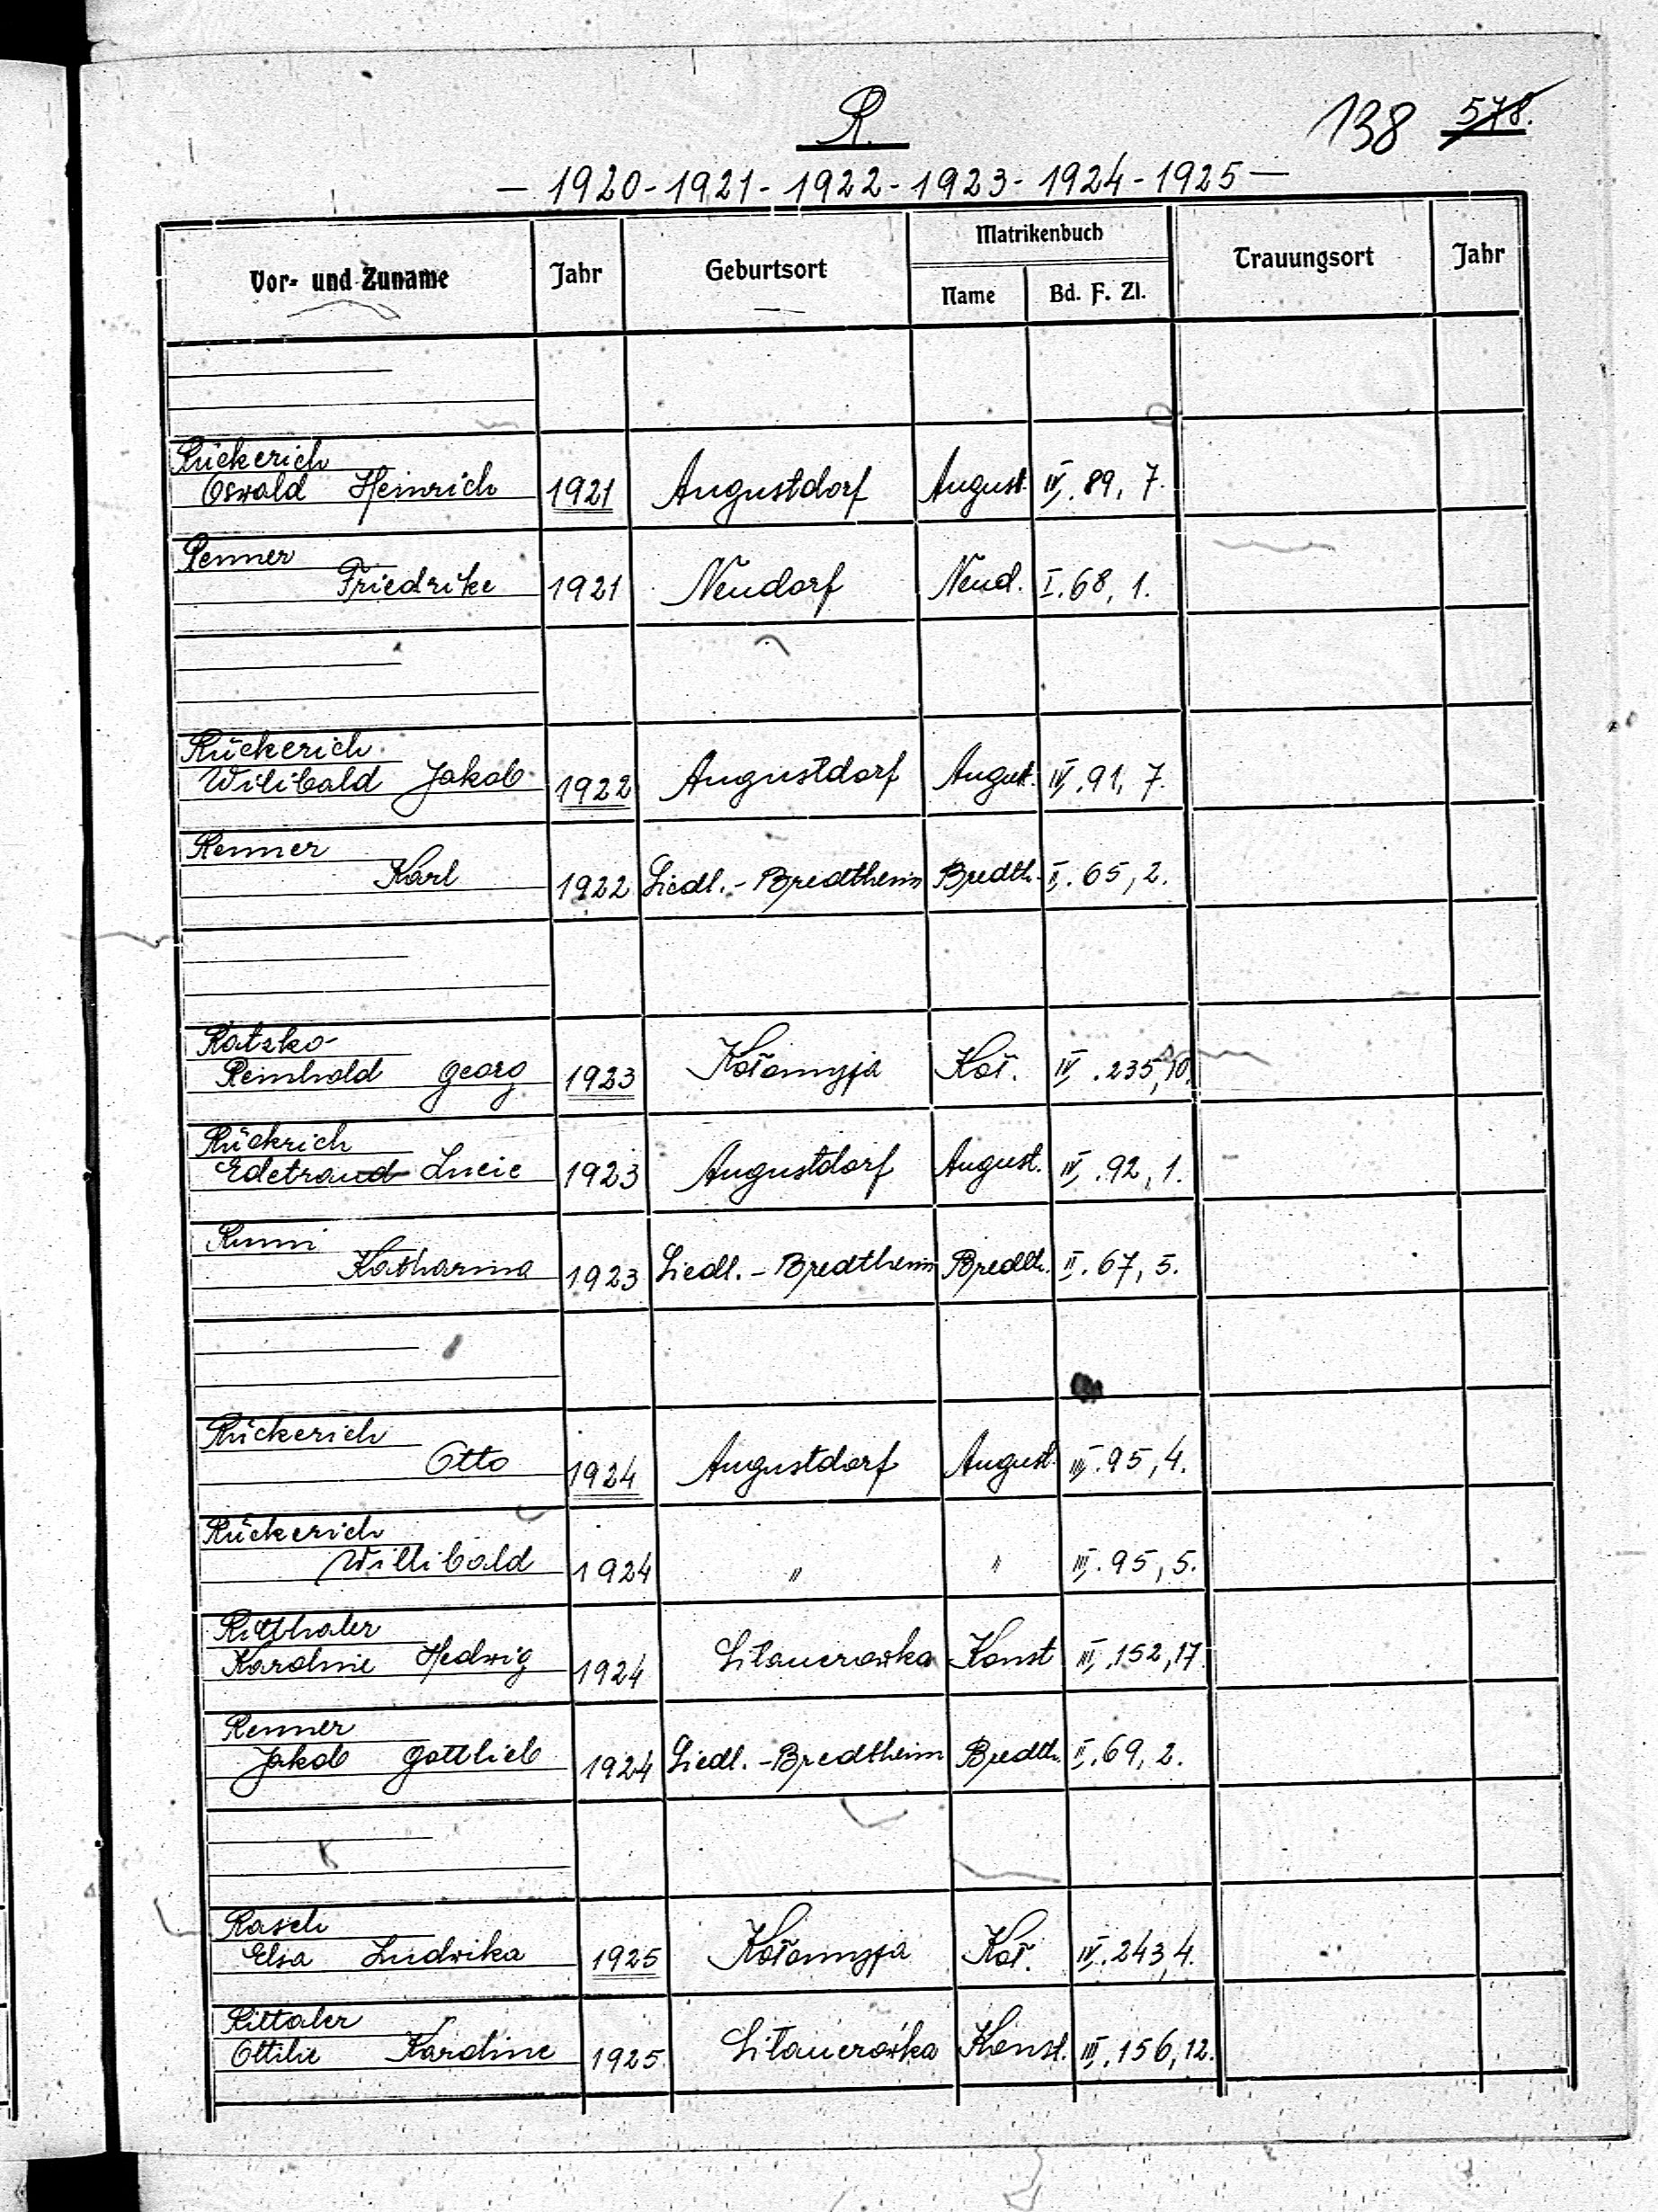 R.
138 578.
— 1920 - 1921 - 1922 - 1923 - 1924 - 1925 —
Vor- und Zuname Jahr Geburtsort Matrikenbuch Trauungsort Jahr
Name Bd. F. Zl.
Rückerich
Oswald Heinrich 1921 Augustdorf August. IV. 89, 7.
Renner
Friedrike 1921 Neudorf Neud. I. 68, 1.
Rückerich
Wilibald Jakob 1922 Augustdorf August. IV. 91, 7.
Renner
Karl 1922 Siedl. - Bredtheim Bredth. II. 65, 2.
Ratzko
Reinhold Georg 1923 Kołomyja Koł. IV. 235, 10.
Rückrich
Edetraud Lucie 1923 Augustdorf August. IV. 92, 1.
Katharina 1923 Siedl. - Bredtheim Bredth. II. 67, 5.
Rückerich
Otto 1924 Augustdorf August. III. 95, 4.
Rückerich
Willibald 1924 " " III. 95, 5.
Ritthaler
Karoline Hedwig 1924 Sitauerowka Konst III. 152, 17.
Renner
Jakob Gottlieb 1924 Siedl. - Bredtheim Bredth. II. 69, 2.
Rasch
Elsa Ludwika 1925 Kołomyja Koł. IV. 243, 4.
Rittaler
Ottilie Karoline 1925 Sitauerówka Konst. III. 156, 12.